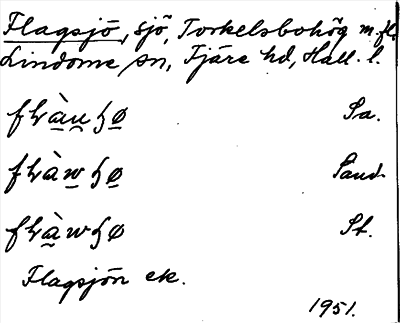 Flagsjö, sjö, Torkelsbohög m.fl.
Lindome sn, Fjäre hd, Hall. l.
Sa.
Sand.
St.
Flagsjön ek.
1951.